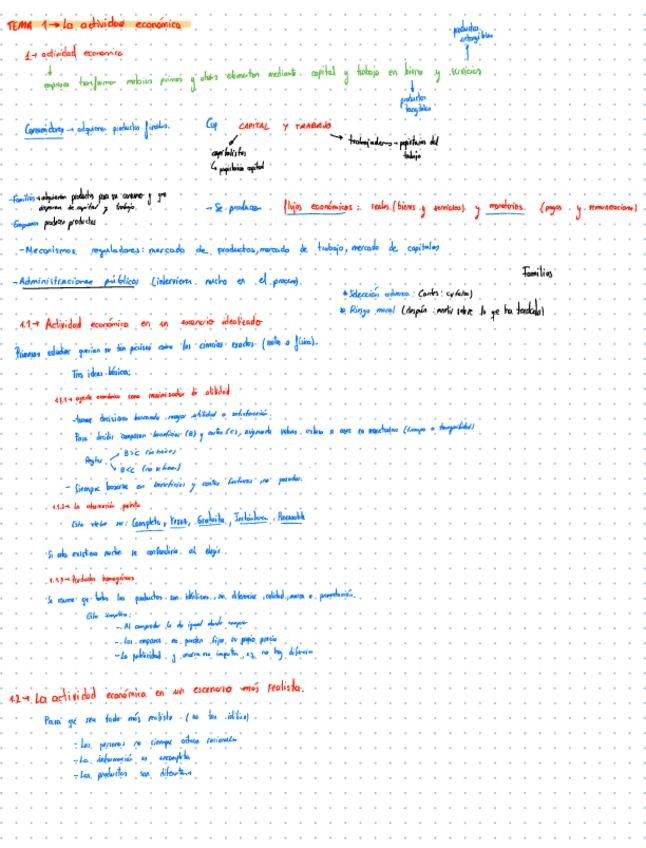 TEMA 1→ La actividad económica
productos intangibles
1→ actividad economica
empresa transforman materias primas y otros elementos mediante capital y trabajo en bienes y servicios
productos tangibles
Consumidores → adquieren productos finales.
CAPITAL Y TRABAJO
capitalistas
↳ propietarios capital
trabajadores → propietarios del trabajo
-Familias → adquieren productos para su consumo y que disponen de capital y trabajo.
-Empresas producen productos
- Se producen flujos económicos: reales (bienes y servicios) y monetarios. (pagos y remuneraciones)
-Mecanismos reguladores: mercado de productos, mercado de trabajo, mercado de capitales
-Administraciones públicas (intervienen mucho en el proceso).
Familias
* Selección adversa: (antes:
* Riesgo moral (después:
1.1→ Actividad económica en un escenario idealizado
estudiar querian ser tan precisos como las ciencias exactas (mates o física).
Tres ideas básicas:
1.1.1→ agente económico como maximizador de utilidad
-toman decisiones buscando mayor utilidad o satisfacción.
Para decidir comparan beneficios (B) y costes (C), (tiempo o tranquilidad)
Reglas
B>C
B<C
- Siempre basarse en beneficios y costes futuros no pasados.
1.1.2→ La información perfecta
Esta debe ser: Completa, Veraz, Gratuita, Instantánea, Procesable
Si esto existiera nadie se confundiría al elegir
1.1.3→ Productos homogéneos
Se asume que todos los productos son idénticos, sin diferencias, calidad, marca o presentación.
Esto implica:
- Al comprador le da igual donde comprar
- Las empresas no pueden fijar su propio precio
- La publicidad y marca no importa, no hay diferencia
1.2→ La actividad económica en un escenario más realista.
Para que sea todo más realista (no tan idílico).
- Las personas no siempre actúan racionales
- La información es incompleta
- Los productos son diferentes